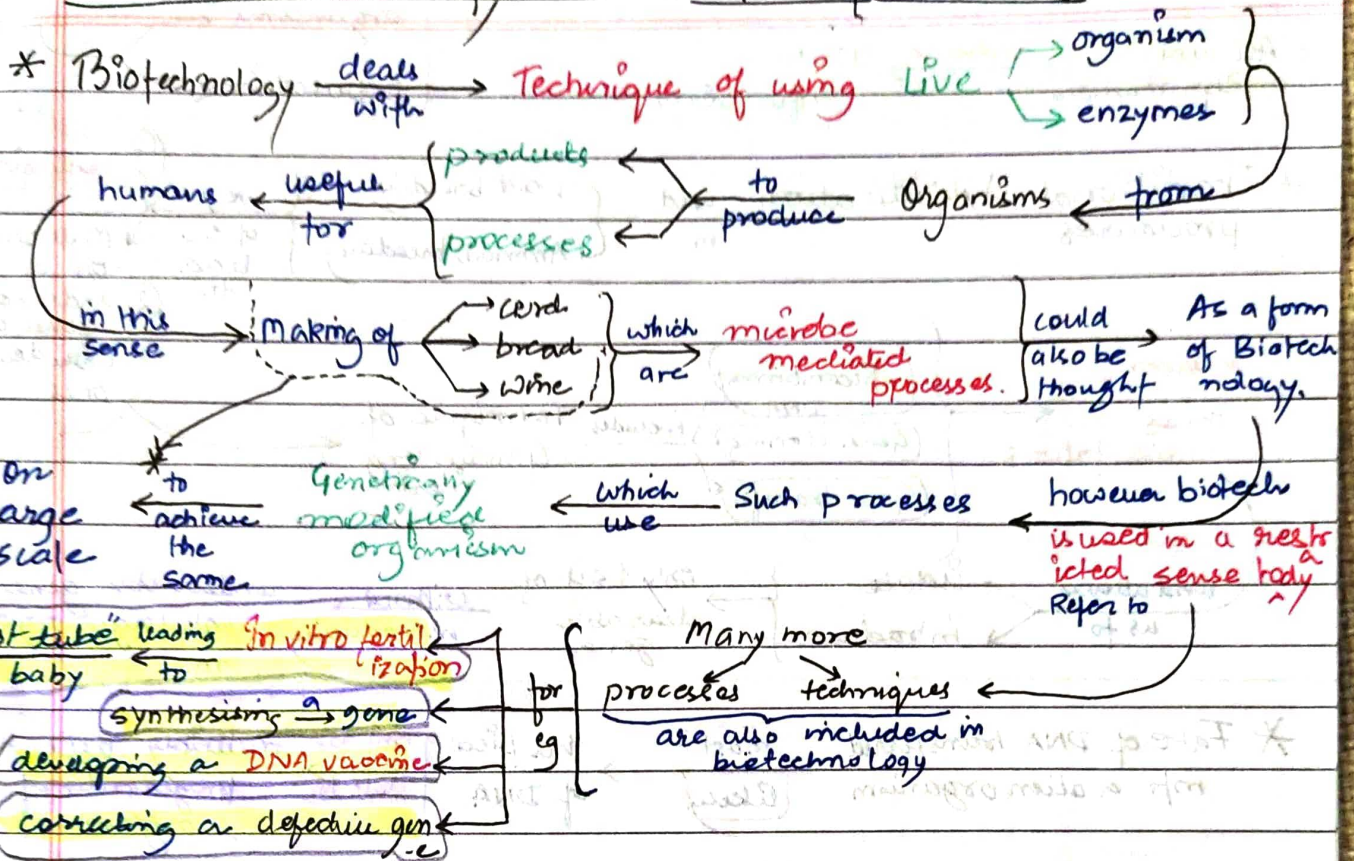 * Biotechnology deals with Technique of using Live organism
enzymes
from Organisms to produce products
processes
useful for humans
in this sense Making of curd
bread
wine
which are microbe
mediated
processes.
could also be thought As a form
of Biotech
nology.
however biotech
is used in a restr
icted sense today
Refer to
Such processes which use Genetically
modified
organism
to achieve the same
On
arge
scale
Many more
processes techniques
are also included in
biotechnology
for eg
In vitro fertil
ization
leading to
t tube"
baby
synthesising a gene
developing a DNA vaccine
correcting a defective gen
-e